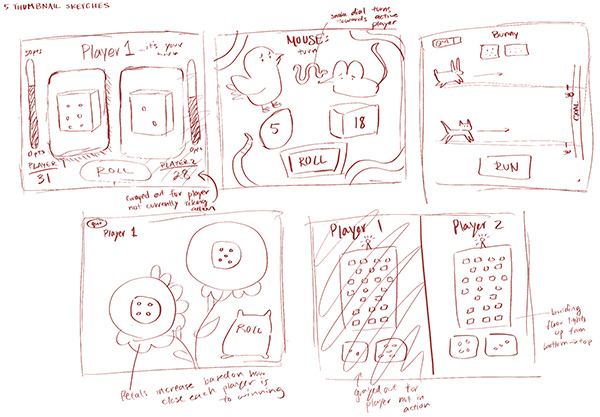 5 THUMBNAIL SKETCHES
50pts
Player 1 ...it's your
turn
0pts
0pts
PLAYER 1
31
ROLL
PLAYER 2
28
Grayed out for player
not currently taking
action
snake dial turns
towards active
player
MOUSE:
turn
5
18
ROLL
Bunny
GOAL
RUN
Quit
Player 1
ROLL
Petals increase based on how
close each player is
to winning
Player 1
Player 2
grayed out for
player not in
action
building
floor lights
up from
bottom → top